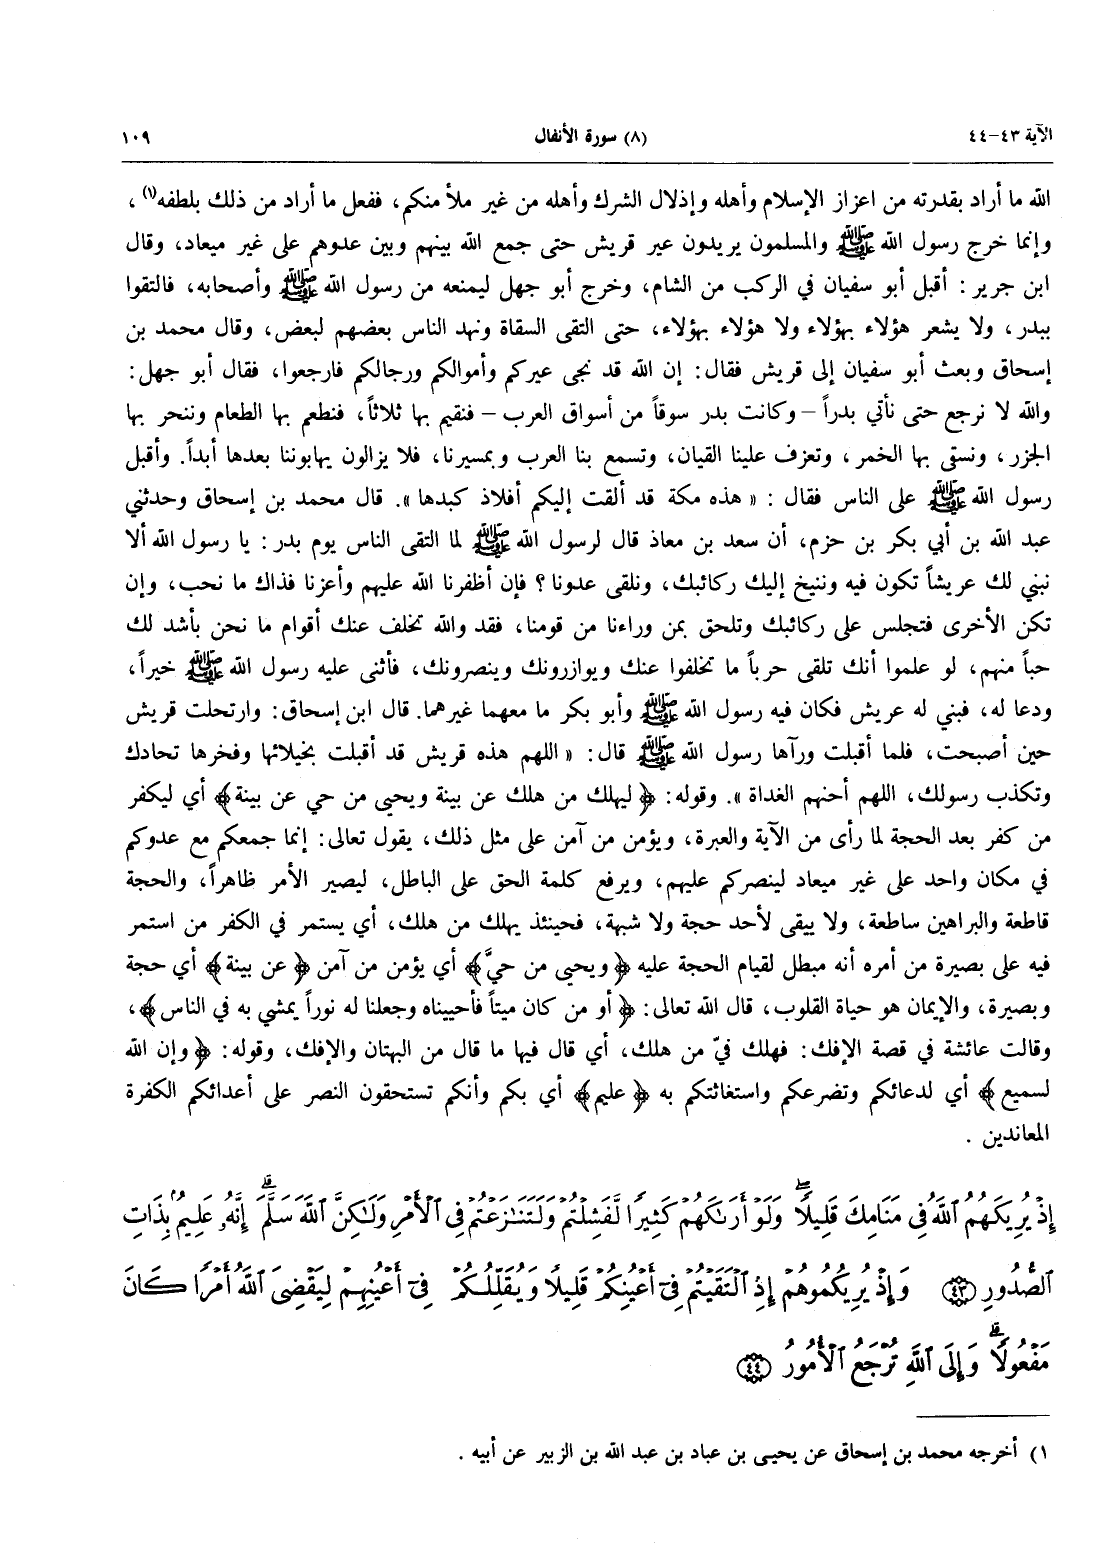 الآية ٤٣-٤٤ (٨) سورة الأنفال ١٠٩
الله ما أراد بقدرته من اعزاز الإسلام وأهله وإذلال الشرك وأهله من غير ملأ منكم، ففعل ما أراد من ذلك بلطفه(١) ،
وإنما خرج رسول الله ﷺ والمسلمون يريدون عير قريش حتى جمع الله بينهم وبين عدوهم على غير ميعاد، وقال
ابن جرير : أقبل أبو سفيان في الركب من الشام، وخرج أبو جهل ليمنعه من رسول الله ﷺ وأصحابه، فالتقوا
ببدر، ولا يشعر هؤلاء بهؤلاء ولا هؤلاء بهؤلاء، حتى التقى السقاة ونهد الناس بعضهم لبعض، وقال محمد بن
إسحاق وبعث أبو سفيان إلى قريش فقال: إن الله قد نجى عيركم وأموالكم ورجالكم فارجعوا، فقال أبو جهل:
والله لا نرجع حتى نأتي بدراً – وكانت بدر سوقاً من أسواق العرب – فنقيم بها ثلاثاً، فنطعم بها الطعام وننحر بها
الجزر، ونسقى بها الخمر، وتعزف علينا القيان، وتسمع بنا العرب وبمسيرنا، فلا يزالون يهابوننا بعدها أبداً. وأقبل
رسول الله ﷺ على الناس فقال : « هذه مكة قد ألقت إليكم أفلاذ كبدها ». قال محمد بن إسحاق وحدثني
عبد الله بن أبي بكر بن حزم، أن سعد بن معاذ قال لرسول الله ﷺ لما التقى الناس يوم بدر: يا رسول الله ألا
نبني لك عريشاً تكون فيه وننيخ إليك ركائبك، ونلقى عدونا ؟ فإن أظفرنا الله عليهم وأعزنا فذاك ما نحب، وإن
تكن الأخرى فتجلس على ركائبك وتلحق بمن وراءنا من قومنا، فقد والله تخلف عنك أقوام ما نحن بأشد لك
حباً منهم، لو علموا أنك تلقى حرباً ما تخلفوا عنك ويوازرونك وينصرونك، فأثنى عليه رسول الله ﷺ خيراً،
ودعا له، فبني له عريش فكان فيه رسول الله ﷺ وأبو بكر ما معهما غيرهما. قال ابن إسحاق: وارتحلت قريش
حين أصبحت، فلما أقبلت ورآها رسول الله ﷺ قال: « اللهم هذه قريش قد أقبلت بخيلائها وفخرها تحادك
وتكذب رسولك، اللهم أحنهم الغداة ». وقوله: ﴿ ليهلك من هلك عن بينة ويحيى من حي عن بينة﴾ أي ليكفر
من كفر بعد الحجة لما رأى من الآية والعبرة، ويؤمن من آمن على مثل ذلك، يقول تعالى: إنما جمعكم مع عدوكم
في مكان واحد على غير ميعاد لينصركم عليهم، ويرفع كلمة الحق على الباطل، ليصير الأمر ظاهراً، والحجة
قاطعة والبراهين ساطعة، ولا يبقى لأحد حجة ولا شبهة، فحينئذ يهلك من هلك، أي يستمر في الكفر من استمر
فيه على بصيرة من أمره أنه مبطل لقيام الحجة عليه ﴿ ويحيى من حيَّ﴾ أي يؤمن من آمن ﴿ عن بينة﴾ أي حجة
وبصيرة، والإيمان هو حياة القلوب، قال الله تعالى: ﴿ أو من كان ميتاً فأحييناه وجعلنا له نوراً يمشي به في الناس﴾،
وقالت عائشة في قصة الإفك: فهلك فيّ من هلك، أي قال فيها ما قال من البهتان والإفك، وقوله: ﴿ وإن الله
لسميع﴾ أي لدعائكم وتضرعكم واستغاثتكم به ﴿ عليم﴾ أي بكم وأنكم تستحقون النصر على أعدائكم الكفرة
المعاندين .
إِذْ يُرِيكَهُمُ ٱللَّهُ فِى مَنَامِكَ قَلِيلًاۖ وَلَوْ أَرَىٰكَهُمْ كَثِيرًا لَّفَشِلْتُمْ وَلَتَنَٰزَعْتُمْ فِى ٱلْأَمْرِ وَلَٰكِنَّ ٱللَّهَ سَلَّمَۗ إِنَّهُۥ عَلِيمٌۢ بِذَاتِ
ٱلصُّدُورِ ﴿٤٣﴾ وَإِذْ يُرِيكُمُوهُمْ إِذِ ٱلْتَقَيْتُمْ فِىٓ أَعْيُنِكُمْ قَلِيلًا وَيُقَلِّلُكُمْ فِىٓ أَعْيُنِهِمْ لِيَقْضِىَ ٱللَّهُ أَمْرًا كَانَ
مَفْعُولًاۗ وَإِلَى ٱللَّهِ تُرْجَعُ ٱلْأُمُورُ ﴿٤٤﴾
١) أخرجه محمد بن إسحاق عن يحيى بن عباد بن عبد الله بن الزبير عن أبيه .